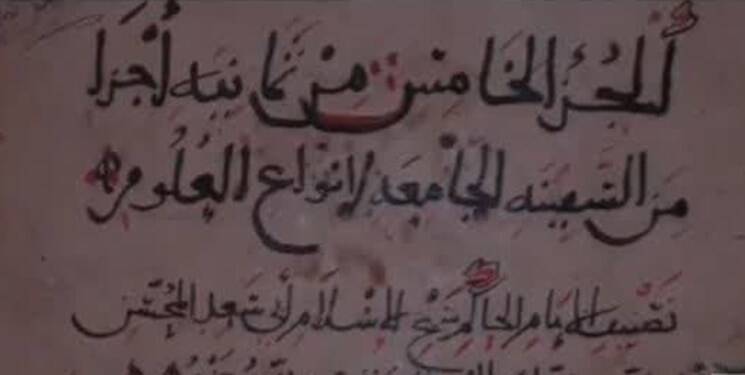 الجزُء الخامِس مِن ثمانيه أجزا
مِن السَّفِينه الجامعَه لانوَاع العُلُوم
تصْنِيف الامام الحاكم شيخ الاسْلام أبي سَعِد المحُسّن